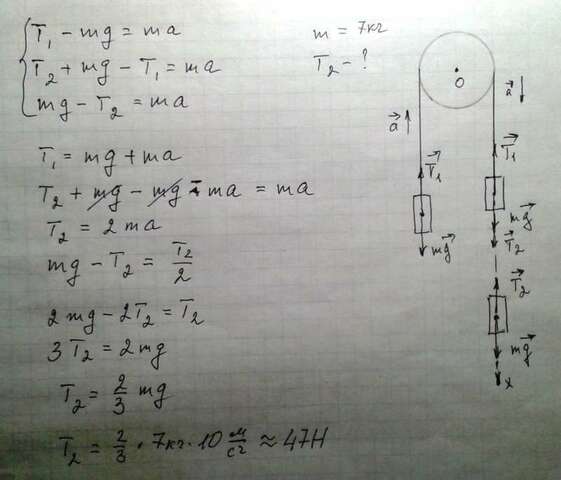 T₁ - mg = ma
T₂ + mg - T₁ = ma
mg - T₂ = ma
T₁ = mg + ma
T₂ + mg - mg - ma = ma
T₂ = 2ma
mg - T₂ = T₂/2
2mg - 2T₂ = T₂
3T₂ = 2mg
T₂ = 2/3 mg
T₂ = 2/3 · 7кг · 10 м/с² ≈ 47Н
m = 7кг
T₂ - ?
O
a
a
T₁
mg
T₁
mg
T₂
T₂
mg
x